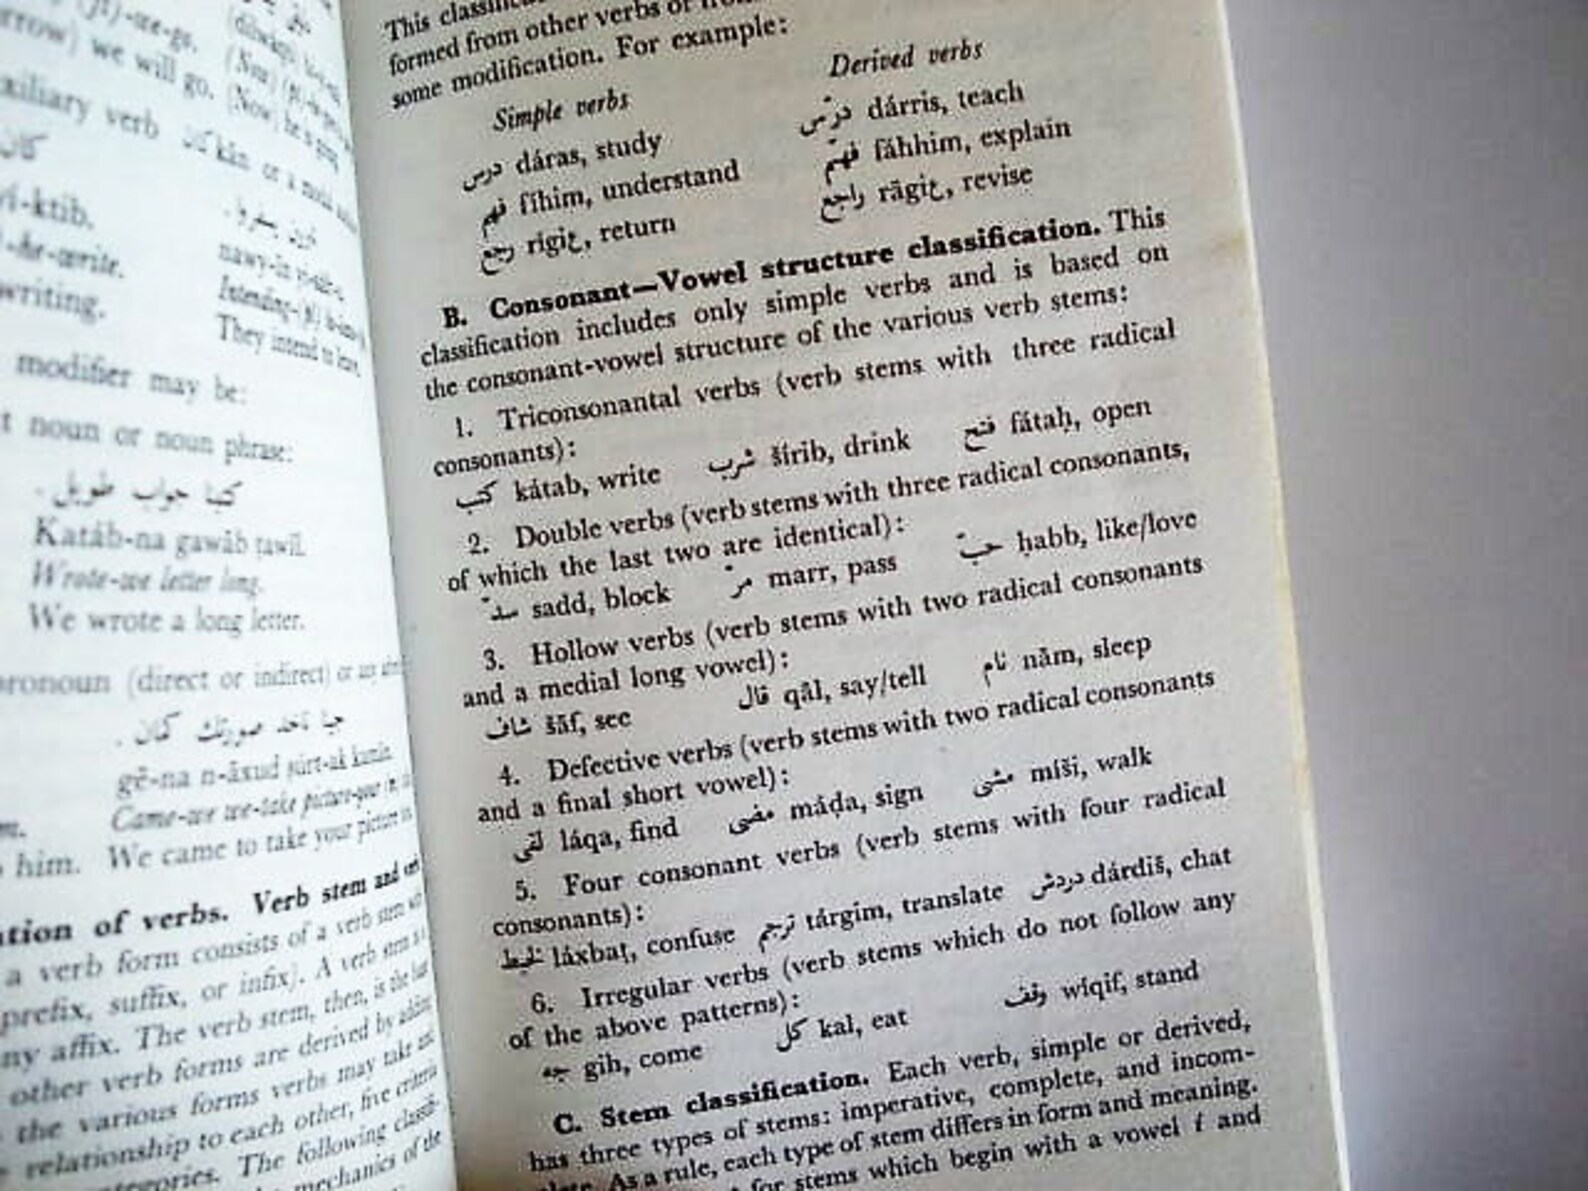 (ji)-we-go.
row) we will go.
xiliary verb كان kān or a
كان
yi-ktib.
-he-write.
writing.
modifier may be:
t noun or noun phrase:
كتبنا جواب طويل .
Katáb-na gawāb ṭawīl.
Wrote-we letter long.
We wrote a long letter.
pronoun (direct or indirect) or any
جينا ناخد صورتك كمان .
gē-na n-āxud ṣúrt-ak kamān.
Came-we we-take picture-you
him. We came to take your picture
ation of verbs. Verb stem and
a verb form consists of a verb stem
prefix, suffix, or infix). A verb stem
ny affix. The verb stem, then, is the
other verb forms are derived by adding
the various forms verbs may take and
relationship to each other, five criteria
ategories. The following classifi-
mechanics of the
This
formed from other verbs or from
some modification. For example:
Simple verbs Derived verbs
درس dáras, study درّس dárris, teach
فهم fíhim, understand فهّم fáhhim, explain
رجع rígiع, return راجع rāgiع, revise
B. Consonant—Vowel structure classification. This
classification includes only simple verbs and is based on
the consonant-vowel structure of the various verb stems:
1. Triconsonantal verbs (verb stems with three radical
consonants):
كتب kátab, write شرب šírib, drink فتح fátaḥ, open
2. Double verbs (verb stems with three radical consonants,
of which the last two are identical):
سدّ sadd, block مرّ marr, pass حبّ ḥabb, like/love
3. Hollow verbs (verb stems with two radical consonants
and a medial long vowel):
شاف šāf, see قال qāl, say/tell نام nām, sleep
4. Defective verbs (verb stems with two radical consonants
and a final short vowel):
لقى láqa, find مضى máḍa, sign مشى míši, walk
5. Four consonant verbs (verb stems with four radical
consonants):
لخبط láxbaṭ, confuse ترجم tárgim, translate دردش dárdiš, chat
6. Irregular verbs (verb stems which do not follow any
of the above patterns):
جه gih, come كل kal, eat وقف wíqif, stand
C. Stem classification. Each verb, simple or derived,
has three types of stems: imperative, complete, and incom-
plete. As a rule, each type of stem differs in form and meaning.
for stems which begin with a vowel i and